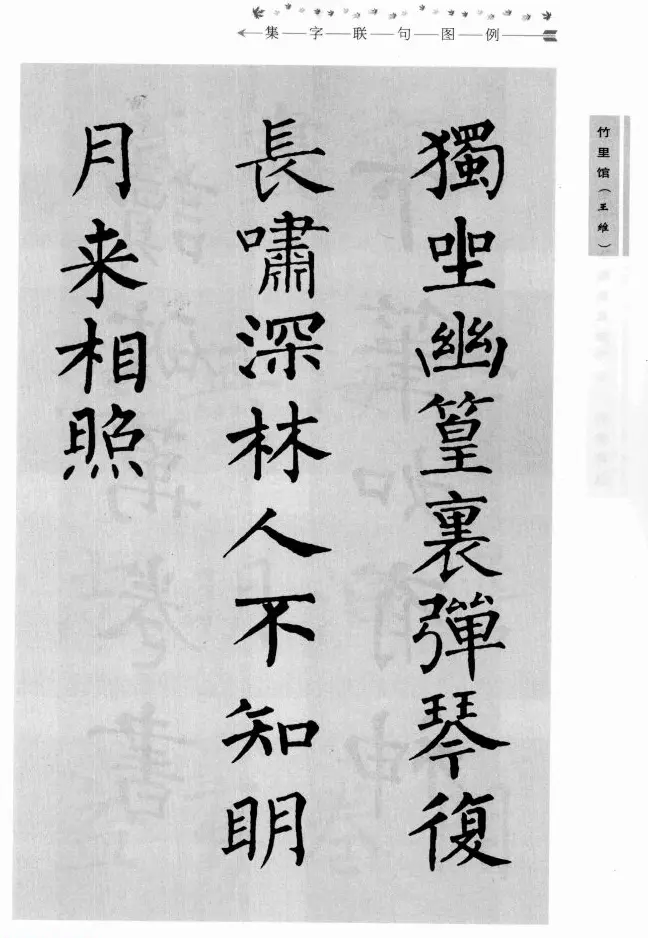 集字联句图例
竹里馆(王维)
獨坐幽篁裏彈琴復
長嘯深林人不知明
月来相照